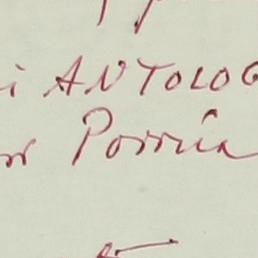 i ANTOLOG
or Porrúa